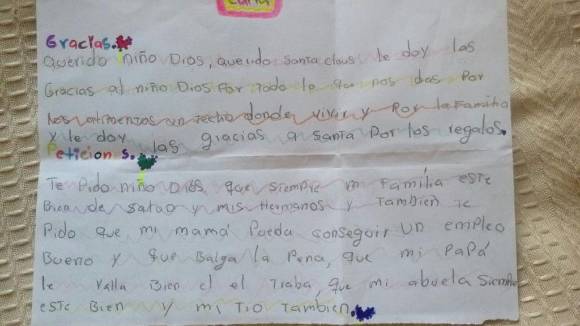 Carta
Gracias.
Querido niño Dios, querido santa claus le doy las
Gracias al niño Dios por todo lo que nos das por
los alimenzos un techo donde vivir y por la familia
y le doy las gracias a santa por los regalos.
Peticions.
Te Pido niño Dios que siempre mi Familia este
Bien de salao y mis Hermanos y Tambien te
Pido que mi mamá Pueda conseguir un empleo
Bueno y que Balga la Pena, que mi PaPá
le valla Bien el el Traba, que mi abuela siempre
este Bien y mi Tio Tambien.